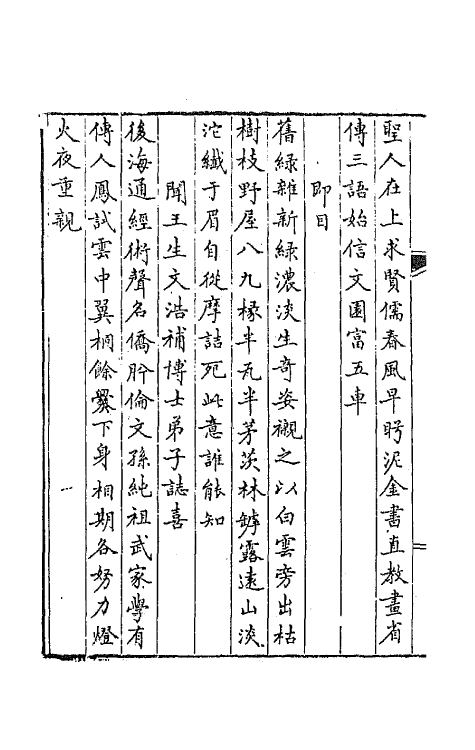 聖人在上求賢儒春風早盼泥金書直教畫省
傳三語始信文園富五車
即目
舊綠雜新綠濃淡生奇姿襯之以白雲旁出枯
樹枝野屋八九椽半瓦半茅茨林罅露遠山淡
沱纖于眉自從摩詰死此意誰能知
聞王生文浩補博士弟子誌喜
後海通經術聲名僑肸倫文孫純祖武家學有
傳人鳳試雲中翼桐餘爨下身相期各努力燈
火夜重親